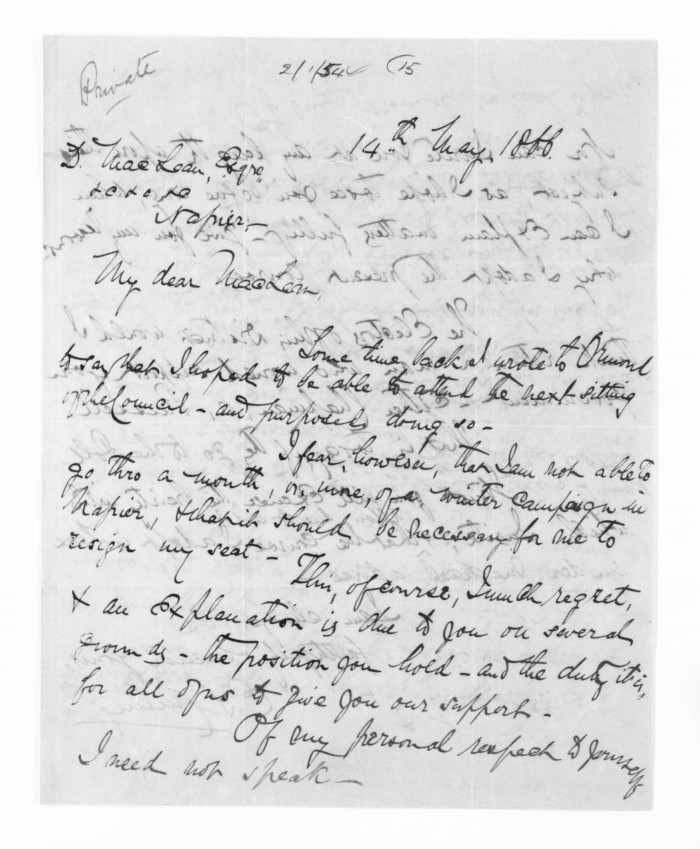 Private
2/1/54 15
14th May, 1866.
D. MacLean, Esqre,
&c &c &c
Napier,-
My dear MacLean,
Some time back I wrote to Ormond
to say that I hoped to be able to attend the next sitting
of the Council - and purposed doing so -
I fear, however, that I am not able to
go thro a month, or, more, of a winter campaign in
Napier, & that it should be necessary for me to
resign my seat -
This, of course, I much regret,
& an explanation is due to you on several
grounds - the position you hold - and the duty it is,
for all of us to give you our support -
Of my personal respect to yourself
I need not speak -